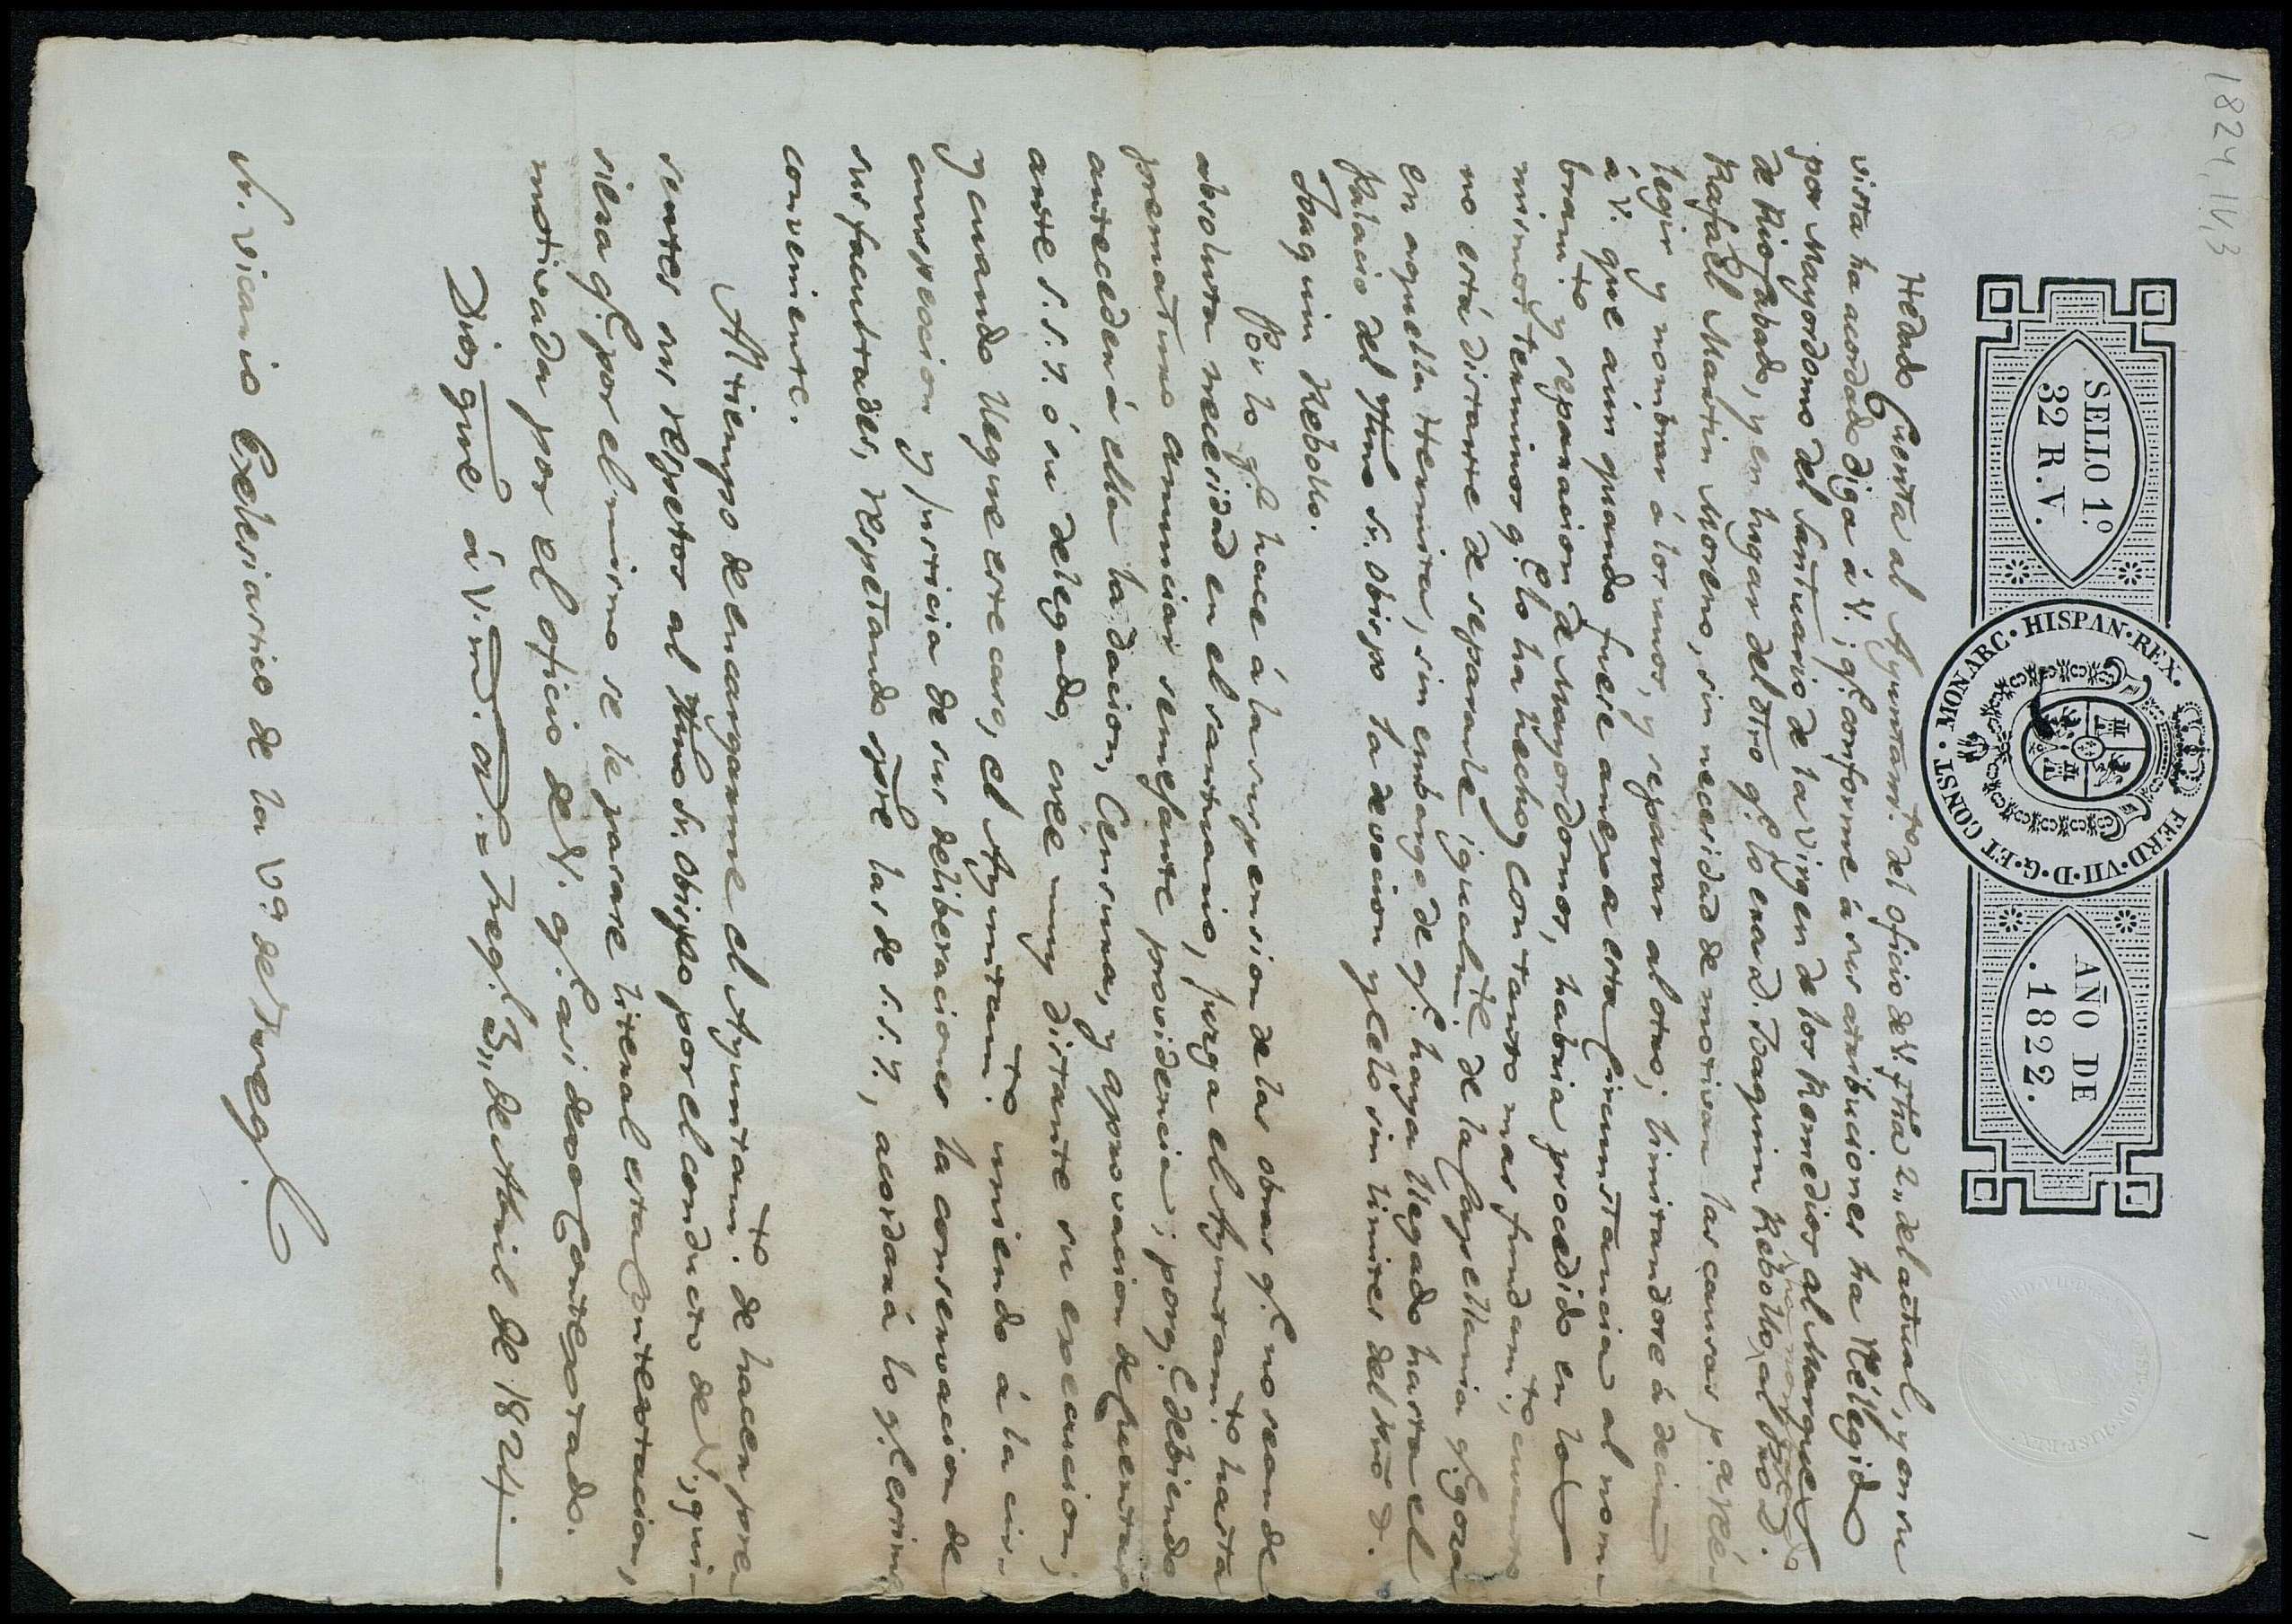 1824, IV, 3
SELLO 1.º
32 R.V.
HISPAN · REX · FERD · VII · D · G · ET CONST · MONARC ·
AÑO DE
. 1822.
He dado Cuenta al Ayuntam.to del oficio de V. fha 2,, del actual, y en su
vista ha acordado diga á V.; q.e conforme á sus atribuciones ha Relegido
por Mayordomo del Santuario de la Virgen de los Remedios al Marques
de Riofabado, y en lugar del otro q.e lo era d. Joaquin Rebollo, ha nombrado al Pro d.
Rafael Martin Moreno, sin necesidad de motivar las causas p.a Ree-
legir y nombrar á los unos, y separar al otro; limitandose á decir
á V. que aún quando fuese anexa esta Circunstancia al nom-
bram.to y separacion de Mayordomos, habria procedido en los
mismos terminos q.e lo ha hecho y con tanto mas fundam.to, cuanto
no está distante de separarle igualm.te de la Capellania q.e goza
en aquella Hermita, sin embargo de q.e haya llegado hasta el
Palacio del Ylmo Sr. Obispo la devocion y celo sin limites del Pro d.
Joaquin Rebollo.
Por lo q.e hace á la suspension de las obras q.e no sean de
absoluta necesidad en el santuario, juzga el Ayuntam.to hasta
prematuro anunciar semejante providencia; porq.e debiendo
anteceder á ella la dacion, Censura, y aprovacion de Cuentas
ante S. S. Y. ó su delegado, cree muy distante su execucion;
y cuando llegue este caso, el Ayuntam.to uniendo á la cir-
cunspeccion y justicia de sus deliberaciones la conservacion de
sus facultades, respetando spre las de S. S. Y., acordará lo q.e estime
conveniente.
Al tiempo de encargarme el Ayuntam.to de hacer pre-
sentes sus respetos al Ylmo Sr. Obispo por el conducto de V., qui-
siera q.e por el mismo se le pasare literal esta Contextacion,
motivada por el oficio de V. q.e asi dexo Contextado.
Dios gue á V. m.s a.s = Freg.l 3,, de Abril de 1824
Sr. Vicario Eclesiastico de la V.a de Freg.l